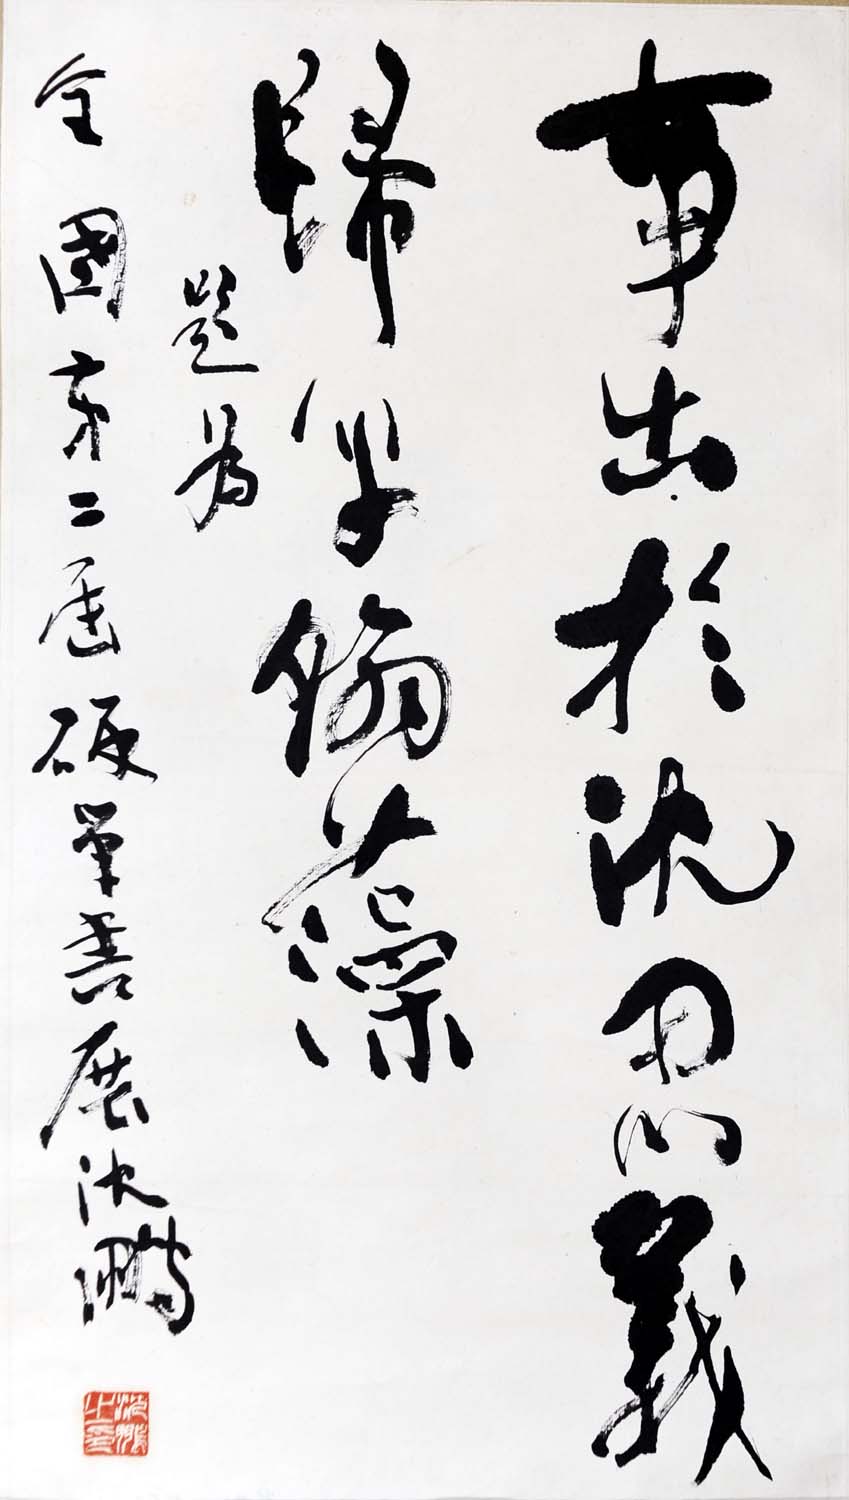 事出於沈思義
歸乎翰藻
題為
全國第二屆硬筆書展沈鵬
沈鵬之印